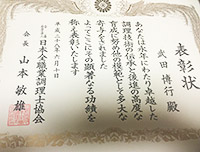 表彰状
武田博行殿
あなたは永年にわたり卓越した
調理技術の伝承と後進の
育成に努め他の模範として多大な
寄与をされました
よってここにその顕著なる功績を
称え表彰いたします
平成二十八年六月十日
日本全職業調理士協会
会長 山本敏雄